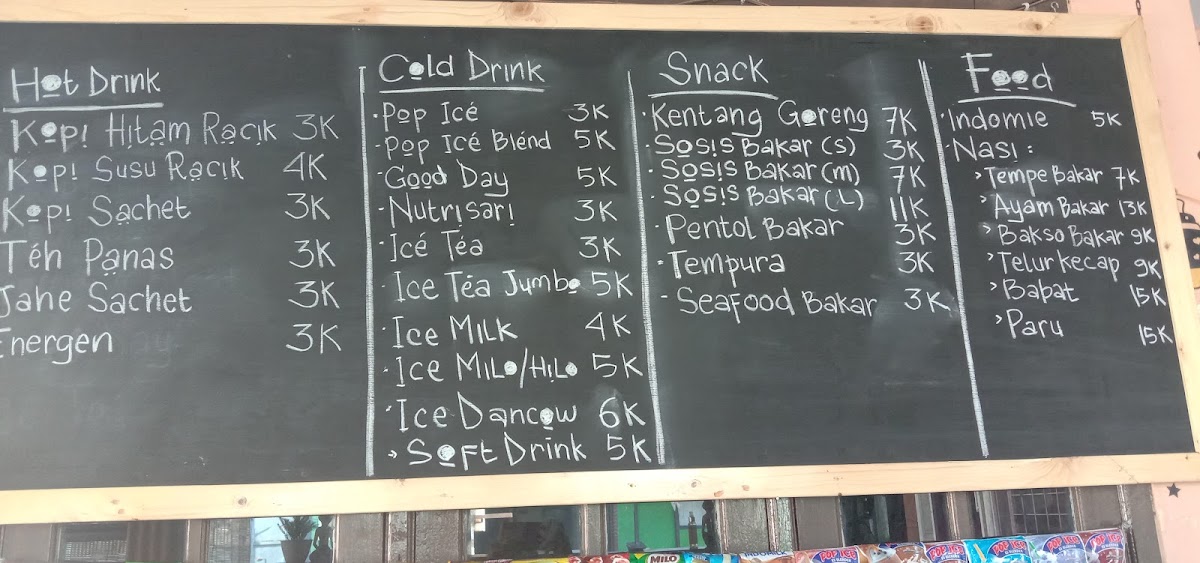 Hot Drink
Kopi Hitam Racik 3K
Kopi Susu Racik 4K
Kopi Sachet 3K
Téh Panas 3K
Jahe Sachet 3K
Energen 3K
Cold Drink
· Pop Icé 3K
· Pop Icé Blénd 5K
· Good Day 5K
· Nutrisari 3K
· Icé Téa 3K
· Ice Téa Jumbo 5K
· Ice Milk 4K
· Ice Milo/Hilo 5K
· Ice Dancow 6K
> Soft Drink 5K
Snack
· Kentang Goreng 7K
· Sosis Bakar (S) 3K
· Sosis Bakar (m) 7K
· Sosis Bakar (L) 11K
· Pentol Bakar 3K
· Tempura 3K
- Seafood Bakar 3K
Food
· Indomie 5K
· Nasi :
> Tempe Bakar 7K
> Ayam Bakar 13K
> Bakso Bakar 9K
> Telur Kecap 9K
> Babat 15K
> Paru 15K
MILO
POP ICE
POP ICE
POP ICE
POP ICE